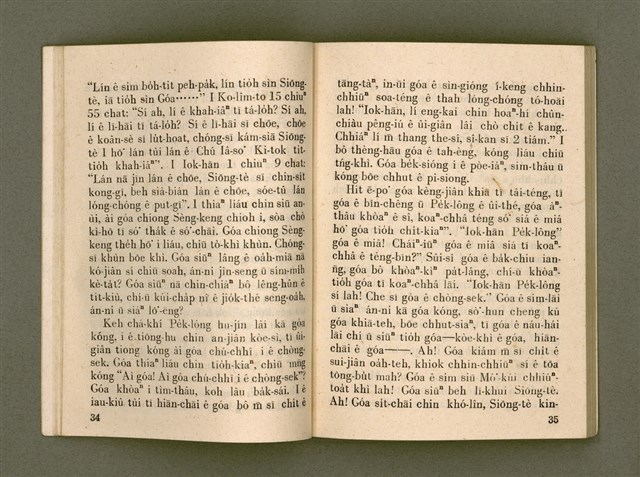 “Lín ê sim bo̍h-tit peh-pák, lín tio̍h sìn Siōng-
tè, iā tio̍h sìn Góa⋯⋯” I Ko-lîm-to 15 chiuⁿ
55 chat: “Sí ah, lí ê khah-iâⁿ tī tá-lo̍h? Sí ah,
lí ê lī-hāi tī tá-lo̍h? Sí ê lī-hāi sī chōe, chōe
ê koân-sè sī lu̍t-hoat, chóng-sī kám-siā Siōng-
tè I hō͘ lán tùi lán ê Chú Iâ-so͘ Ki-tok tit-
tio̍h khah-iâⁿ”. I Iok-hān 1 chiuⁿ 9 chat:
“Lán nā jīn lán ê chōe, Siōng-tè sī chin-si̍t
kong-gī, beh sià-bián lán ê chōe, sóe-tû lán
lóng-chóng ê put-gī”. I thiaⁿ liáu chin siū an-
ùi, ài góa chiong Sèng-keng chioh i, sòa chò
kî-hō tī só͘ tha̍k ê só͘-chāi. Góa chiong Sèng-
keng the̍h hō͘ i liáu, chiū tò-khì khùn. Chóng-
sī khùn bōe khì. Góa siūⁿ lâng ê oa̍h-miā nā
kó-jiân sí chiū soah, án-ni jîn-seng ū sím-mi̍h
kè-ta̍t? Góa siūⁿ nā chin-chiàⁿ bô lêng-hûn ê
tit-kiù, chí-ū kúi-cha̍p nî ê jio̍k-thé seng-oa̍h,
án-ni ū siaⁿ lō͘-ēng?
Keh chá-khí Pe̍k-lông hu-jîn lâi kā góa
kóng, i ê tiōng-hu chin an-jiân kòe-sì, tī ûi-
giân tiong kóng ài góa chù-chhī i ê chòng-
sek. Góa thiaⁿ liáu chin tio̍h-kiaⁿ, chiū mn̄g
kóng “Ài góa! Ài góa chù-chhī i ê chòng-sek?”
Góa khòaⁿ i tìm-thâu, koh lâu ba̍k-sái. I ê
iau-kiû tùi tī hiān-chāi ê góa bô m̄ sī chi̍t ê
34
tāng-tàⁿ, in-ūi góa ê sìn-gióng í-keng chhin-
chhiūⁿ soa-téng ê thah lóng-chóng tó-hoāi
lah! “Iok-hān, lí eng-kai chin hoaⁿ-hí chún-
chiâu pēng-iú ê ûi-giân lâi chò chit ê kang..
Chhiáⁿ lí m̄ thang the-sî, sî-kan sī 2 tiám.” I
bô thèng-hāu góa ê tah-èng, kóng liáu chiū
tńg-khì. Góa be̍k-sióng i ê pòe-iáⁿ, sim-thâu ū
kóng bōe chhut ê pi-siong.
Hit ē-po͘ góa kèng-jiân khiā tī tâi-téng, tī
góa ê bīn-chêng ū Pe̍k-lông ê ûi-thé, góa àⁿ-
thâu khòaⁿ ê sî, koaⁿ-chhâ téng só͘ siá ê miâ
hō͘ góa tio̍h chi̍t-kiaⁿ”. “Iok-hān Pe̍k-lông”
góa ê miâ! Cháiⁿ-iūⁿ góa ê miâ siá tī koaⁿ-
chhâ ê téng-bīn?” Sûi-sî góa ê ba̍k-chiu ian-
n̄g, góa bô khòaⁿ-kìⁿ pa̍t-lâng, chí-ū khòaⁿ-
tio̍h góa tī koaⁿ-chhâ lāi. “Iok-hān Pe̍k-lông
sí lah! Che sī góa ê chòng-sek.” Góa ê sim-lāi
ū siaⁿ án-ni kā góa kóng, só͘-hun cheng kú
góa khiā-teh, bōe chhut-siaⁿ, tī góa ê náu-hái
lāi chí ū siūⁿ tio̍h góa—kòe-khì ê góa, hiān-
chāi ê góa——. Ah! Góa kiám m̄ sī chi̍t ê
sui-jiân oa̍h-teh, khiok chhin-chhiūⁿ sí ê tōa
tōng-bu̍t mah? Góa ê sim siū Mô͘-kúi chhiúⁿ-
toa̍t khì lah! Góa siūⁿ beh lī-khui Siōng-tè.
Ah! Góa si̍t-chāi chin khó-lîn, Siōng-tè kin-
35